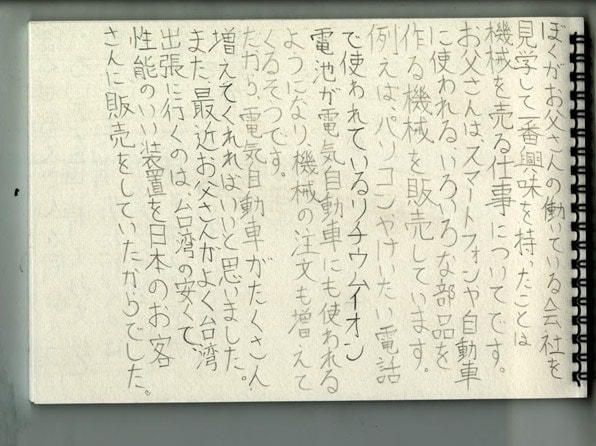 ぼくがお父さんの働いている会社を
見学して一番興味を持たことは
機械を売る仕事についてです。
お父さんは、スマートフォンや自動車
に使われるいろいろな部品を
作る機械を販売しています。
例えばパソコンやけいたい電話
で使われているリチウムイオン
電池が電気自動車にも使われる
ようになり機械の注文も増えて
くるそうです。
だから、電気自動車がたくさん
増えてくれればいいと思いました。
また、最近お父さんがよく台湾
出張に行くのは、台湾の安くて、
性能のいい装置を日本のお客
さんに販売をしていたからでした。